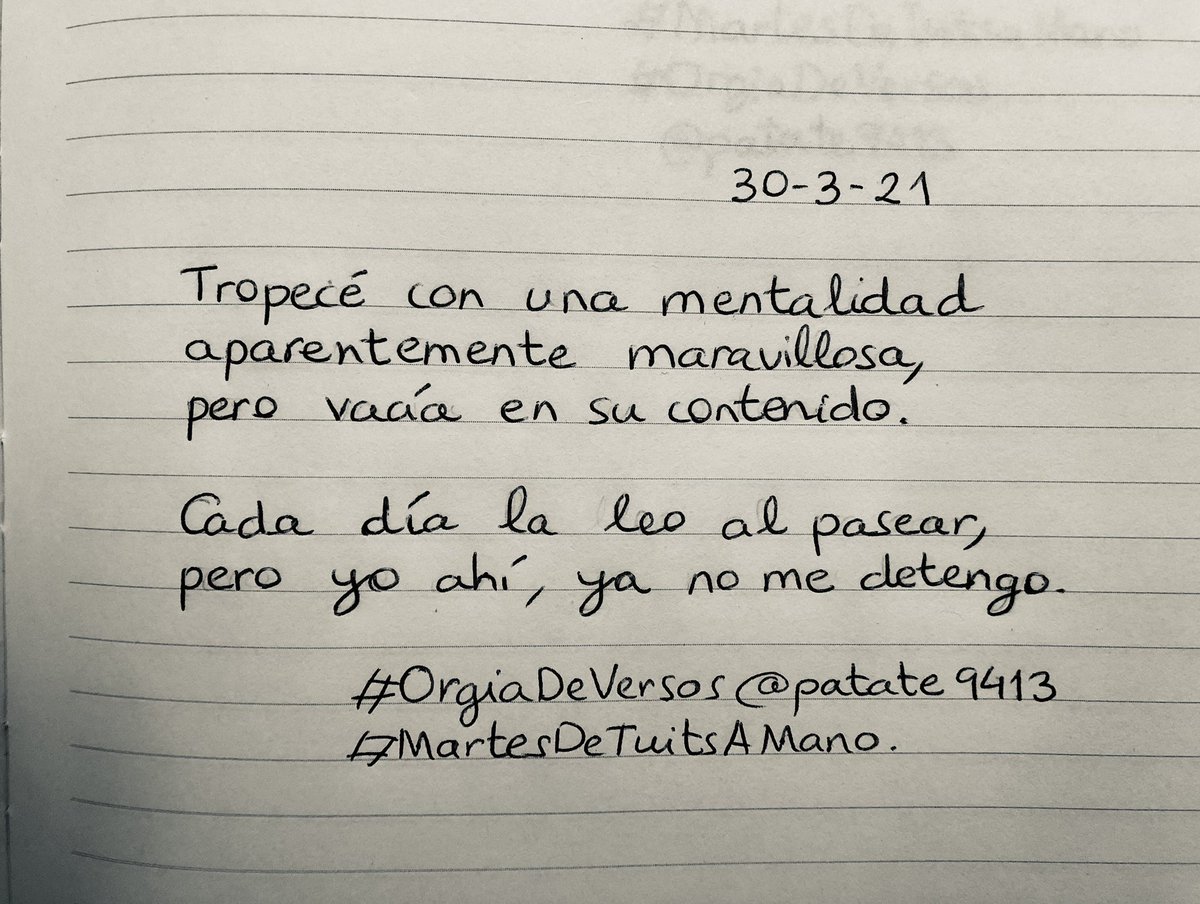 30-3-21
Tropecé con una mentalidad
aparentemente maravillosa,
pero vacía en su contenido.
Cada día la leo al pasear,
pero yo ahí, ya no me detengo.
#OrgiaDeVersos @patate9413
#MartesDeTuitsAMano.